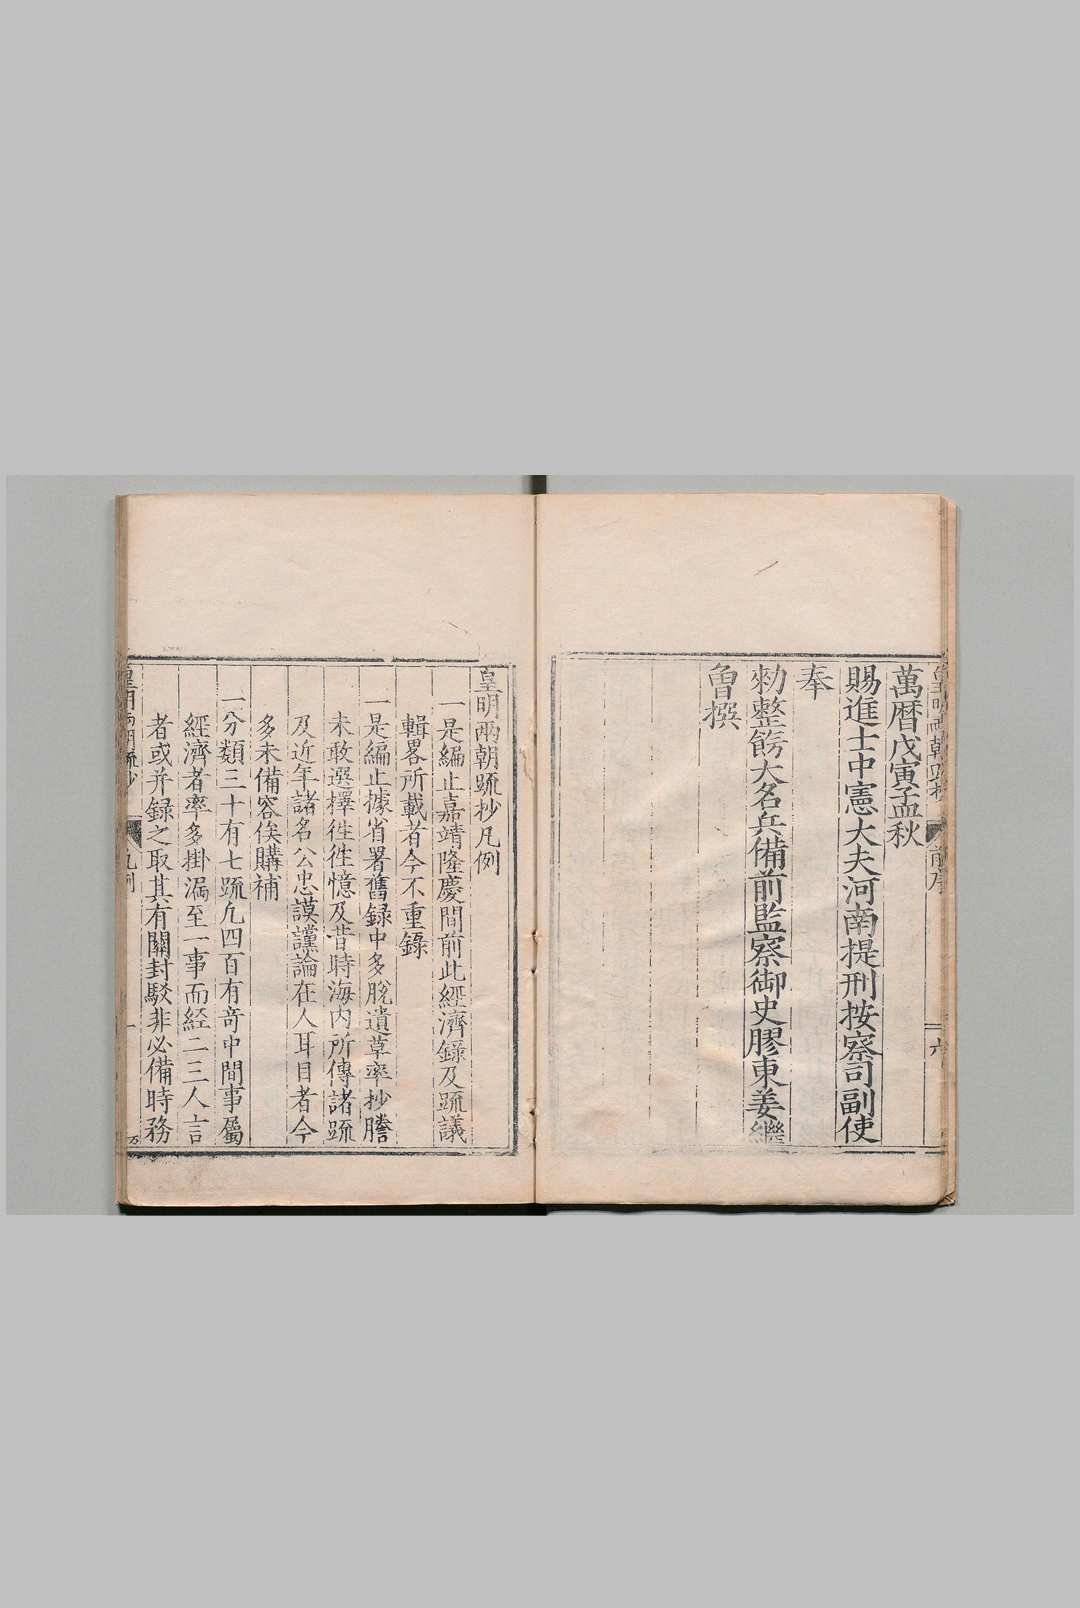 萬曆戊寅孟秋
賜進士中憲大夫河南提刑按察司副使
奉
勑整飭大名兵備前監察御史膠東姜繼
曾撰
皇明兩朝疏抄凡例
一是編止嘉靖隆慶間前此經濟錄及疏議
輯畧所載者今不重錄
一是編止據省署舊録中多脫遺草率抄謄
未敢選擇徃徃憶及昔時海内所傳諸疏
及近年諸名公忠謨讜論在人耳目者今
多未備容俟購補
一分類三十有七疏凢四百有奇中間事屬
經濟者率多掛漏至一事而經二三人言
者或并録之取其有關封駁非必備時務